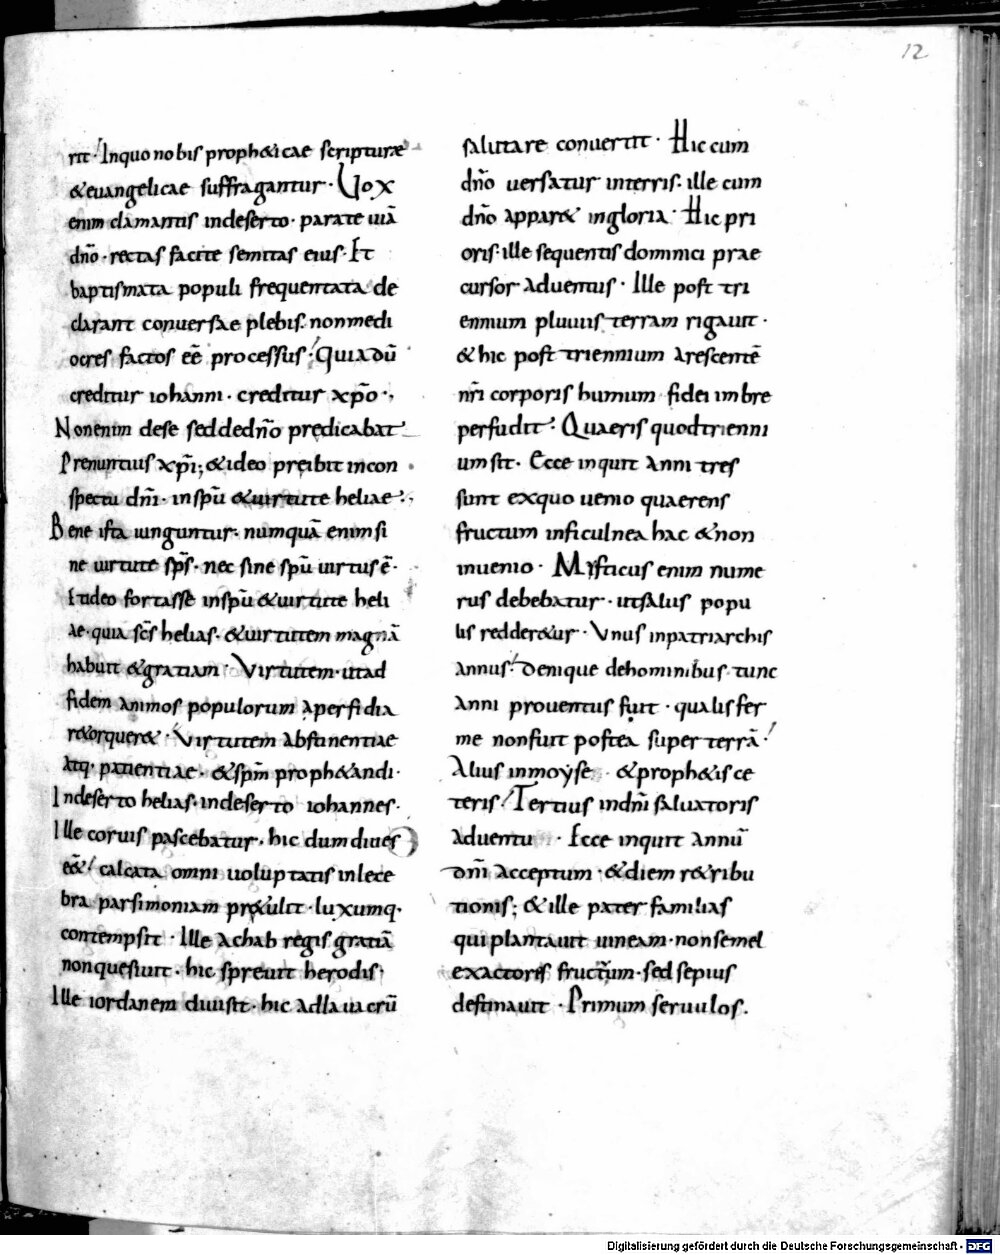 12
rit· Inquo nobis proph&icae scripturae
&euangelicae suffragantur· Uox
enim clamantis indeserto· parate uiā
dn̄o· rectas facite semitas eius· Et
baptismata populi frequentata de
clarant conuersae plebis· nonmedi
ocres factos eē processus; Quiadū
creditur iohanni· creditur xp̄o·,
Nonenim dese seddedn̄o predicabat
Prenuntius xp̄i; &ideo preibit incon
spectu dn̄i· inspū &uirtute heliae·,
Bene ista iunguntur· numquā enimsi
ne uirtute sp̄s· nec sine spū uirtus ē·
Etideo fortasse inspū &uirtute heli
ae· quia sc̄s helias· &uirtutem magnā
habuit &gratiam· Virtutem· utad
fidem animos populorum aperfidia
r&orquer&· Virtutem abstinentiae
Atq· patientiae· &spm̄ proph&andi·
Indeserto helias· indeserto iohannes·
Ille coruis pascebatur· hic dumdiues
e&̄ calcata omni uoluptatis inlece
bra parsimoniam pr&ulit· luxumq·
contempsit· Ille achab regis gratiā
nonquesiuit· hic spreuit herodis·
Ille iordanem diuisit· hic adlauacrū
salutare conuertit· Hic cum
dn̄o uersatur interris· ille cum
dn̄o appar& ingloria· Hic pri
oris· ille sequentis dominici prae
cursor aduentus· Ille post tri
ennium pluuiis terram rigauit·
& hic post triennium arescentē
nr̄i corporis humum fidei imbre
perfudit· Quaeris quodtrienni
umsit· Ecce inquit anni tres
sunt exquo uenio quaerens
fructum inficulnea hac &non
inuenio· Mysticus enim nume
rus debebatur· utsalus popu
lis redder&ur· Unus inpatriarchis
annus! Denique dehominibus tunc
anni prouentus fuit· qualis fer
me nonfuit postea super terrā!
Alius inmoyse· &proph&is ce
teris! Tertius indn̄i saluatoris
aduentu· Ecce inquit annū
dn̄i acceptum· &diem r&ribu
tionis; &ille pater familias
qui plantauit uineam· nonsemel
exactores fructum· sed sepius
destinauit· Primum seruulos.
Digitalisierung gefördert durch die Deutsche Forschungsgemeinschaft - DFG